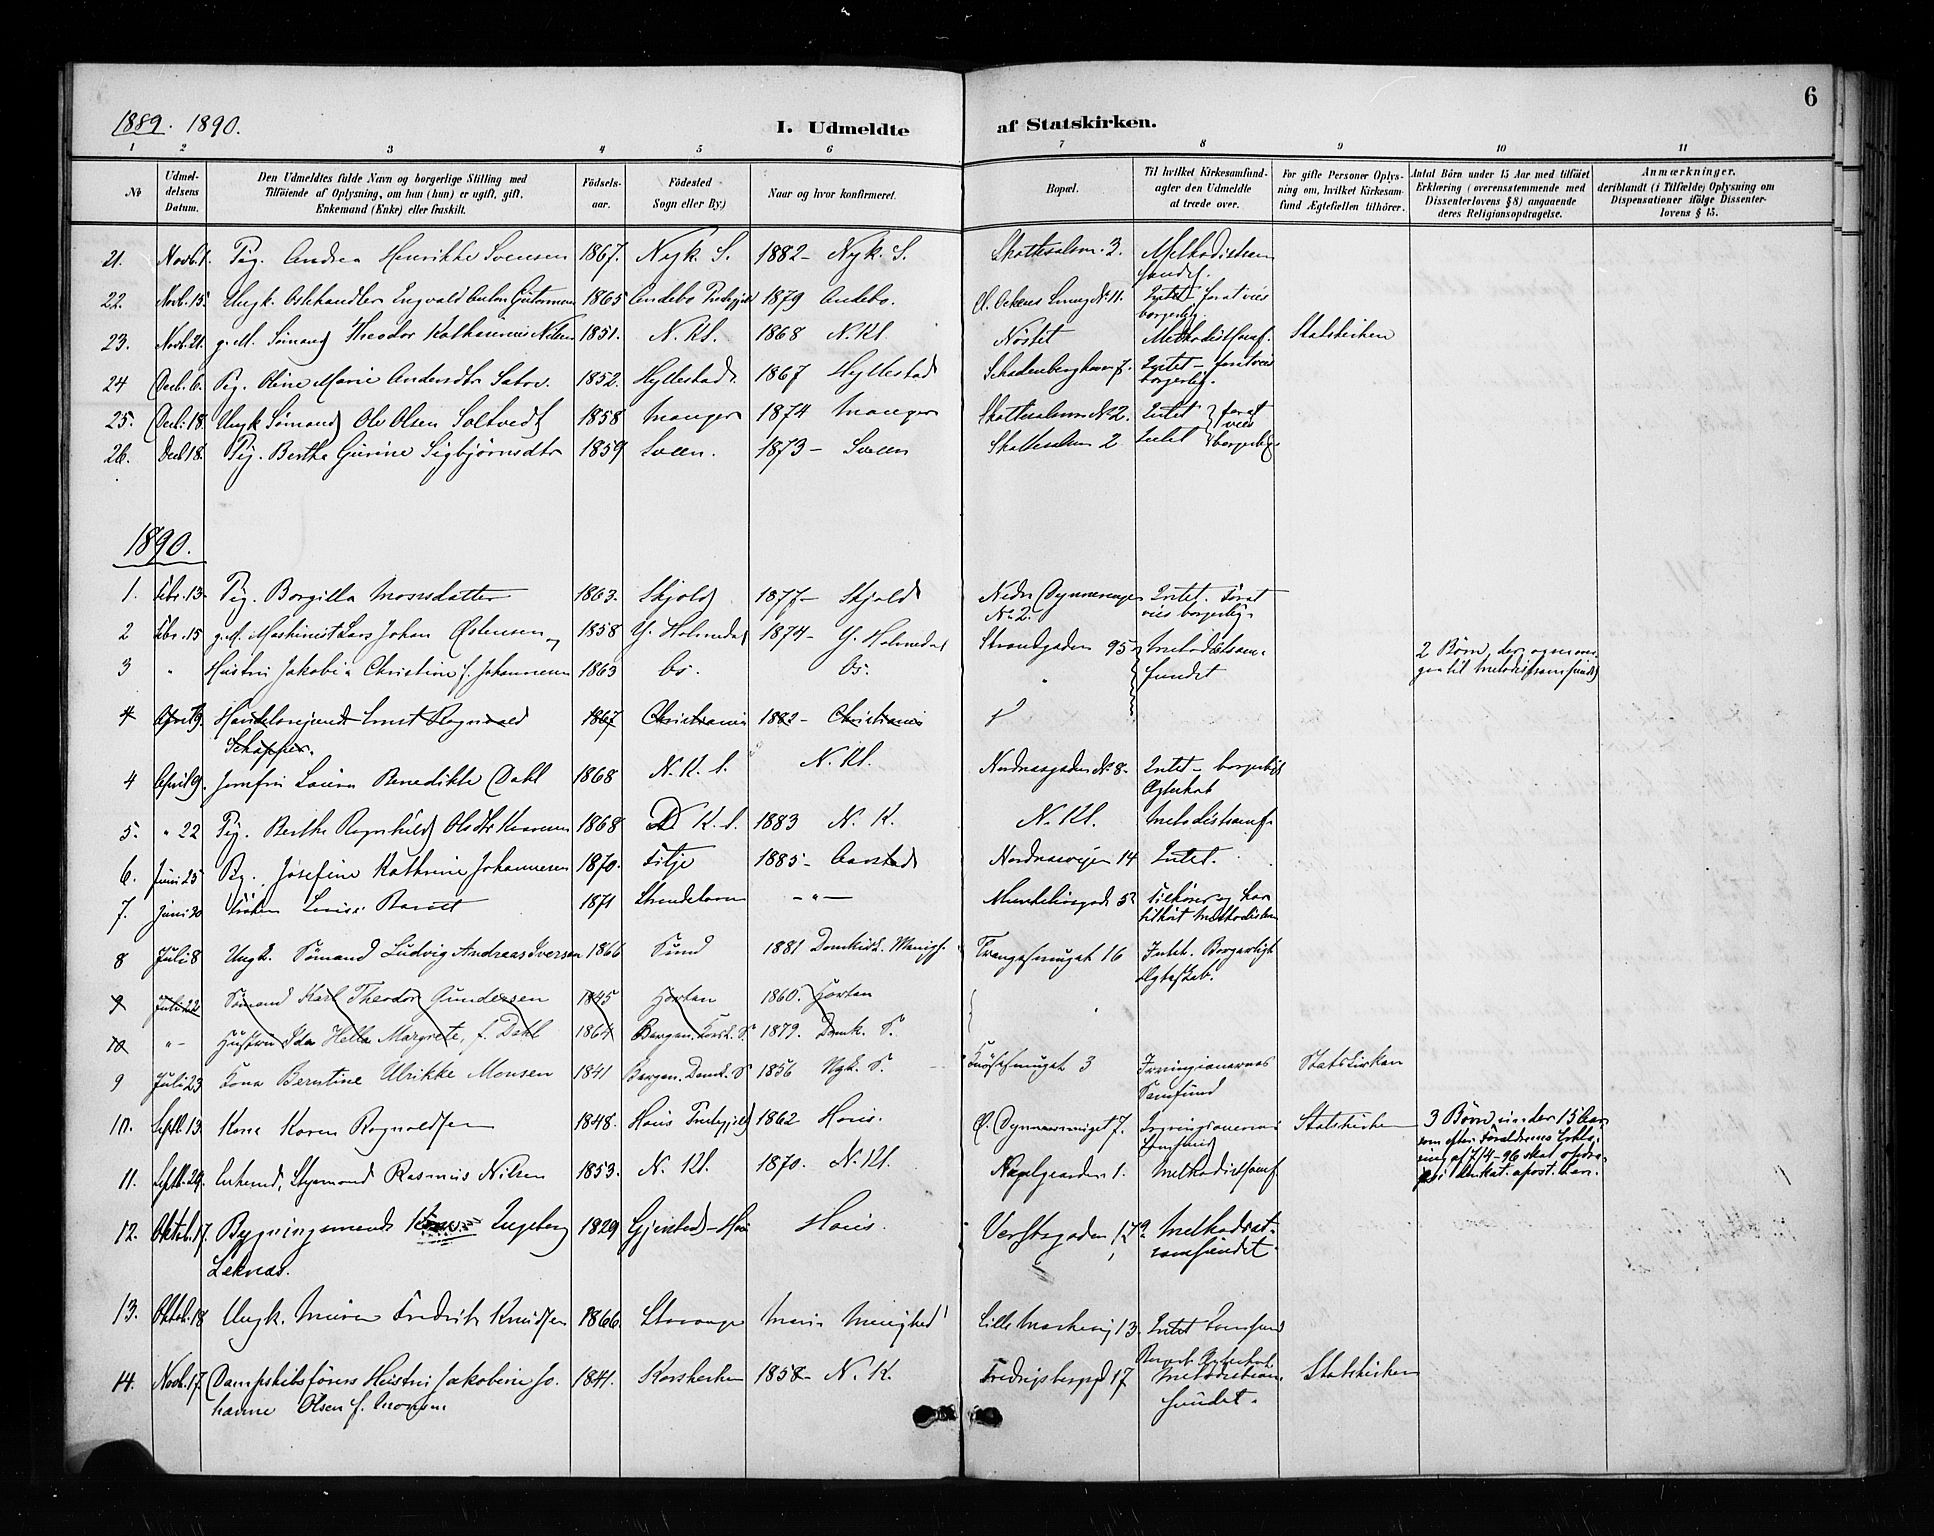 6
1889. 1890.
I. Udmeldte af Statskirken.
1 2 3 4 5 6 7 8 9 10 11
No
Udmeldelsens Datum.
Den Udmeldtes fulde Navn og borgerlige Stilling med
Tilföiende af Oplysning, om han (hun) er ugift, gift,
Enkemand (Enke) eller fraskilt.
Födselsaar.
Födested
Sogn eller By.)
Naar og hvor konfirmeret.
Bopæl.
Til hvilket Kirkesamfund-
agter den Udmeldte
at træde over.
For gifte Personer Oplys-
ning om, hvilket Kirkesam-
fund Ægtefællen tilhörer.
Antal Börn under 15 Aar med tilföiet
Erklæring (overensstemmende med
Dissenterlovens § 8) angaaende
deres Religionsopdragelse.
Anmærkninger,
deriblandt (i Tilfælde) Oplysning om
Dispensationer ifölge Dissenter-
lovens § 15.
21. Novb. 1. Pig. Andrea Henrikke Svensen 1867. Nyk. S. 1882 - Nyk. S. 3. Methodistsam
fundet.
22. Novb. 15. Ungk. Ingvald Anton 1865 Andebo Prestegjeld 1879 Andebo. No 11. Intet - for at vies
borgerlig.
23. Novb. 21. g. M. Sömand Theodor Nilsen 1851. N. Kl. 1868 N. Kl. Nöstet Methodistsamf. Statskirken
24 Decb. 6. Pig. Oline Marie Andersdtr 1852. Hyllestad. 1867 Hyllestad Intet - for at vies
borgerlig.
25. Decb. 18. Ungk Sömand Ole Olsen Soltvedt 1858 Manger 1874 Manger No 2. Intet for at
vies
26. Decb 18. Pig. Berthe Gurine Sigbjörnsdtr 1859 Sveen. 1873 - Sveen 2 Intet borgerlig.
1890.
1. Febr. 13. Pig. Borgilla Monsdatter 1863. Skjold 1877 - Skjold Nedre
No 2. Intet. For at
vies borgerlig.
2 Febr. 15 g. M. Maskinist Lars Johan Østensen og 1858 Y. Holmedal 1874 - Y. Holmedal Strandgaden 95 Methodistsam- 2 Börn, der ogsaa
3 " Hustru Jakobia Christine f. Johannesen 1863 Os. Os. " fundet til Methodistsamfundet
4 April 9. Handelsreisende Ernst Rognvald 1867 Christiania 1882 - Christiania
4 April 9. Jomfru Laura Benedikte Dahl 1868 N. K. N. Kl. Nordnæsgaden No 8. Intet - borgerligt
Ægteskab
5. " 22 Pig. Berthe Ragnhild Olsdtr 1868 K. 1883 N. K. N. Kl. Methodistsamf.
6. Juni 25 Pig. Josefine Kathrine Johannesen 1870. Fitje 1885 - Aarstad Nordnæsveien 14 Intet.
7. Juni 30 Fröken 1871 - " - tilhört Methodisten
8 Juli 8 Ungk. Sömand Ludvig Andreas Iversen 1866 Sund 1881 Domkirk. Menigh. 16 Intet. Borgerligt
Ægteskab.
9 Juli 22 Sömand Karl Theodor Gundersen 1845 Horten 1860. Horten
10 - " - Hustru Ida Hella Margrete, f. Dahl 1864 Bergen. S. 1879. Domk. S.
9 Juli 23 Kona Berntine Ulrikke Monsen 1841 Bergen. Domk. S 1856 Nyk. S. 3 Irvingianernes
Samfund Statskirken
10. Septb. 13 Kone Karen Rognaldsen 1848. Hous Prestegjeld 1862 Hous. 7. Irvingianernes
Samfund Statskirken 3 Börn under 15 Aar
som efter Forældrenes Erklæ-
ring af 7/4-96 skal opdra-
ges i den kat. apost. Læn.
11. Septb. 29. Enkemd, Styrmand Rasmus Nilsen 1853. N. Kl. 1870. N. Kl. 1. Methodistsamf
12. Oktob. 17. Bygningsmands Kone Ingeborg
Leknæs. 1829 Gjerstad - Hous Hous. Verftsgaden 17 Methodist
samfundet.
13. Oktob. 18 Ungk. Murer Fredrik Knudsen 1866 Stavanger Marie Menighed Lille Markevei 13. Intet Samfund
Borgerl. Ægteskab.
14. Novb. 17. Dampskibsförers Hustru Jakobine Jo-
hanne Olsen f. Monsen. 1841. Korskirken 1858 - N. K. Fredrigsbergsgd 17 Methodistsam-
fundet. Statskirken